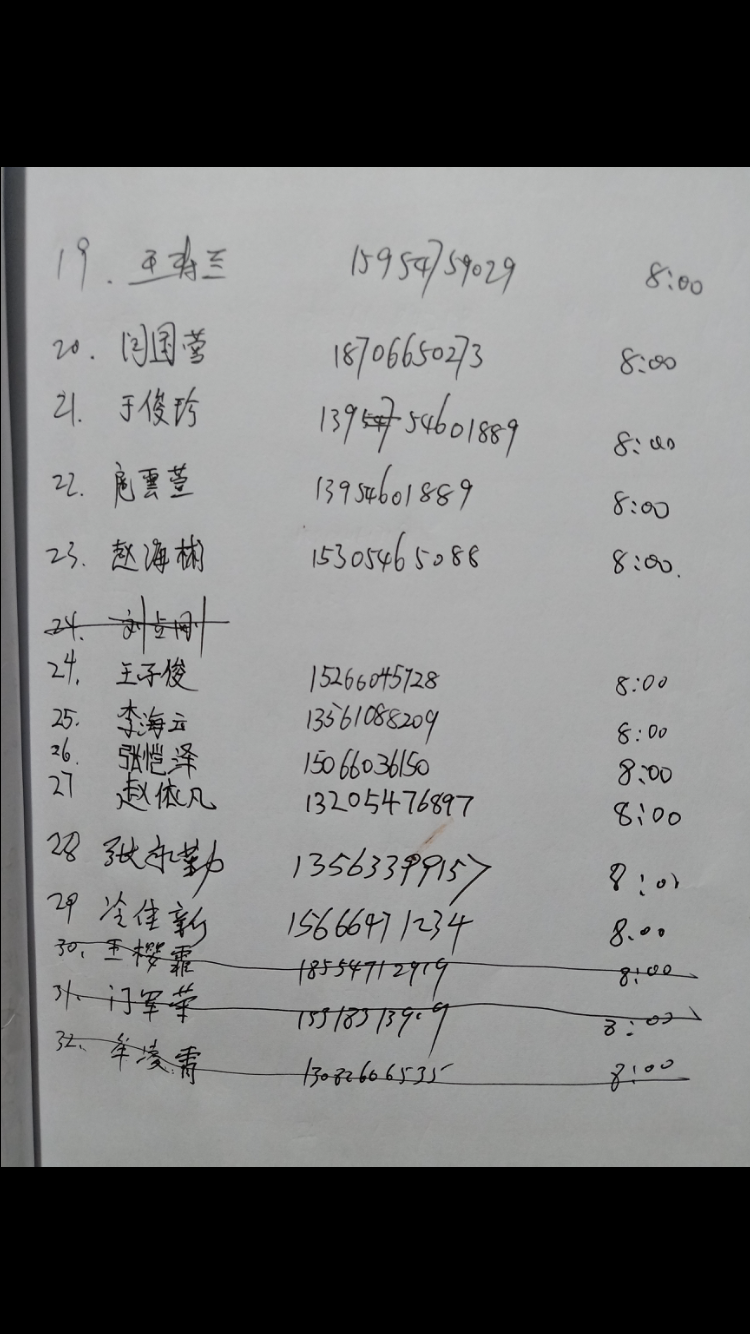 19. 王寿兰 15954759029 8:00
20. 闫国莹 18706650273 8:00
21. 于俊珍 139547 54601889 8:00
22. 扈雲萱 13954601889 8:00
23. 赵海彬 15305465088 8:00.
24. 刘
24. 王子俊 15266045728 8:00
25. 李海云 13561088209 8:00
26. 张恺泽 15066036150 8:00
27 赵依凡 13205476897 8:00
28 张永勤 13563399157 8:00
29 冷佳新 15666471234 8:00
30. 王樱霏 18554712919 8:00
31. 门军荣 8:00
32. 牟凌霄 13082606535 8:00